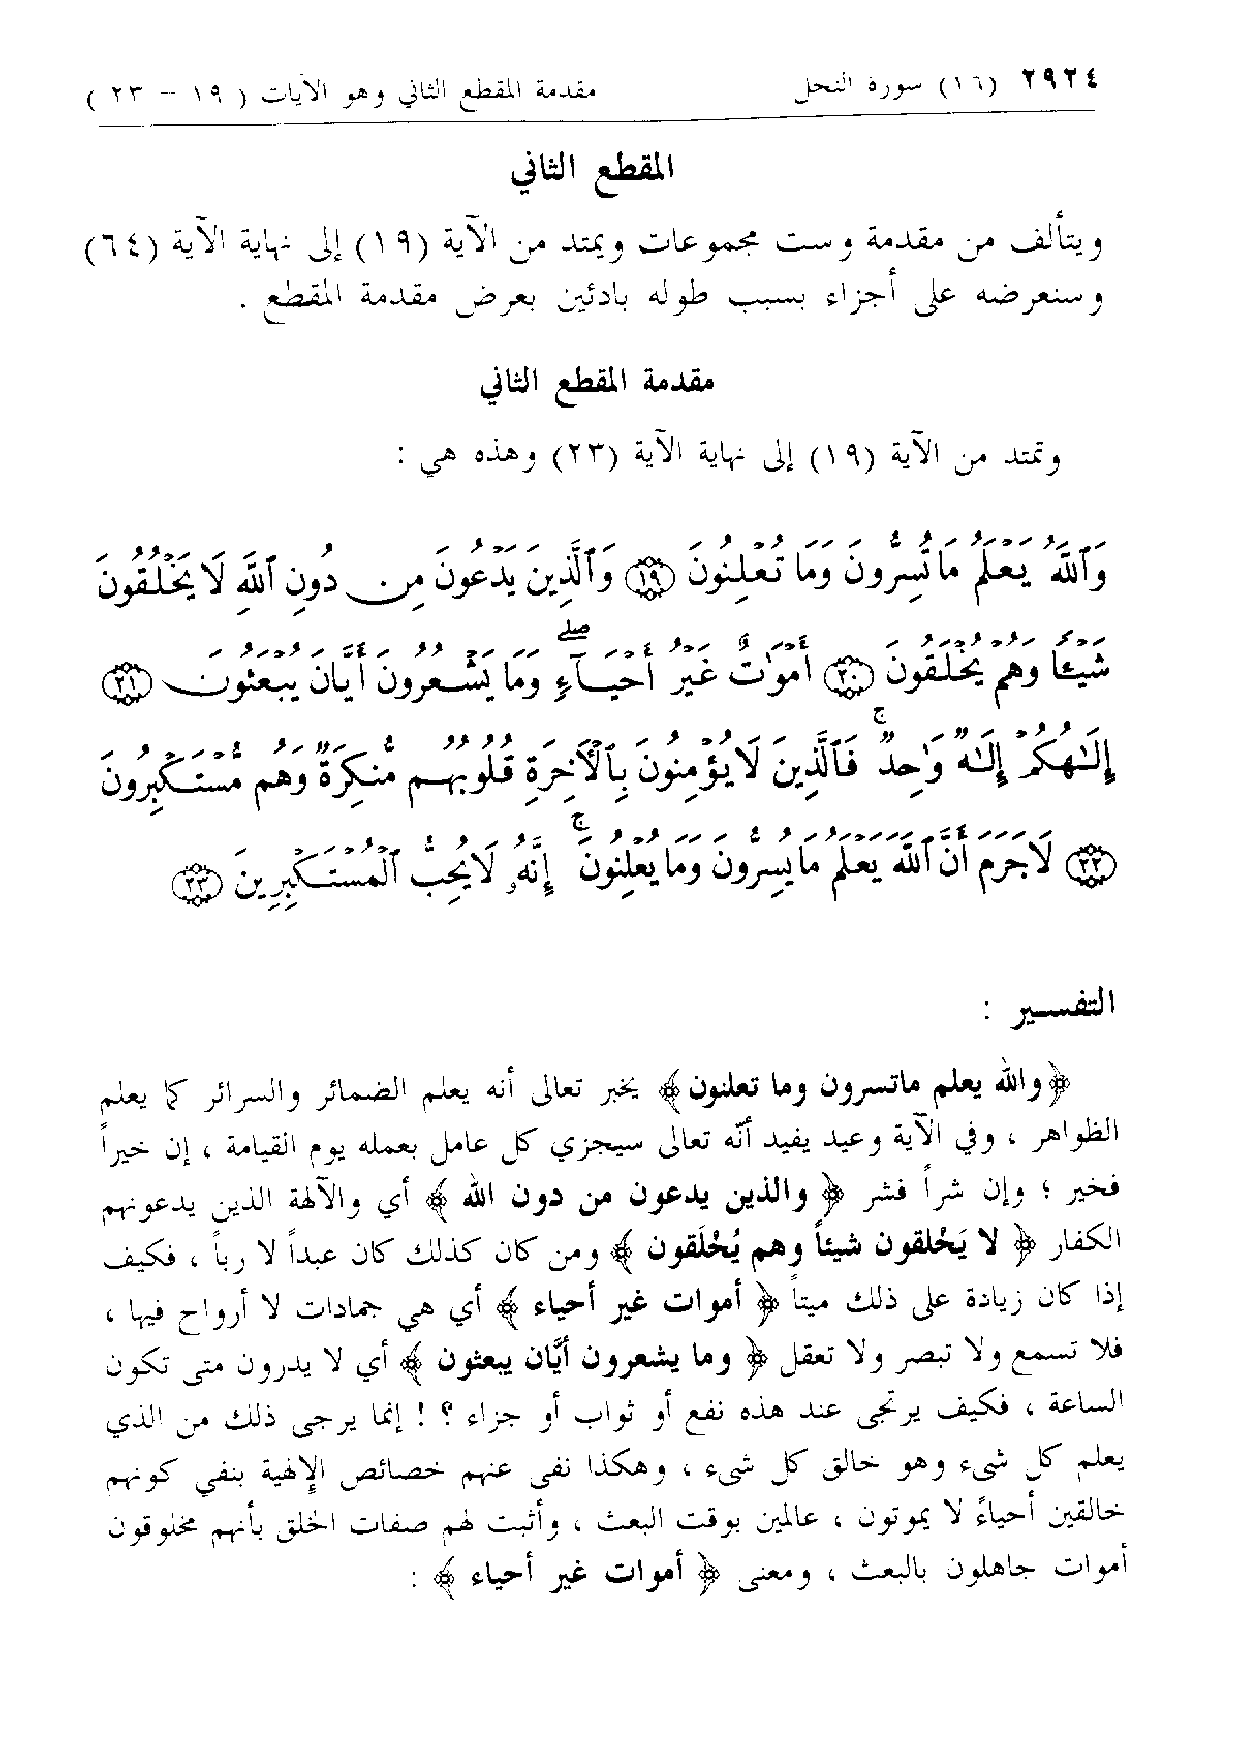 ٢٩٢٤ (١٦) سورة النحل مقدمة المقطع الثاني وهو الآيات ( ١٩ – ٢٣ )
المقطع الثاني
ويتألف من مقدمة وست مجموعات ويمتد من الآية (١٩) إلى نهاية الآية (٦٤)
وسنعرضه على أجزاء بسبب طوله بادئين بعرض مقدمة المقطع .
مقدمة المقطع الثاني
وتمتد من الآية (١٩) إلى نهاية الآية (٢٣) وهذه هي :
وَٱللَّهُ يَعْلَمُ مَا تُسِرُّونَ وَمَا تُعْلِنُونَ ﴿١٩﴾ وَٱلَّذِينَ يَدْعُونَ مِن دُونِ ٱللَّهِ لَا يَخْلُقُونَ
شَيْـًٔا وَهُمْ يُخْلَقُونَ ﴿٢٠﴾ أَمْوَٰتٌ غَيْرُ أَحْيَآءٍ ۖ وَمَا يَشْعُرُونَ أَيَّانَ يُبْعَثُونَ ﴿٢١﴾
إِلَـٰهُكُمْ إِلَـٰهٌ وَٰحِدٌ ۚ فَٱلَّذِينَ لَا يُؤْمِنُونَ بِٱلْأَخِرَةِ قُلُوبُهُم مُّنكِرَةٌ وَهُم مُّسْتَكْبِرُونَ
﴿٢٢﴾ لَا جَرَمَ أَنَّ ٱللَّهَ يَعْلَمُ مَا يُسِرُّونَ وَمَا يُعْلِنُونَ ۚ إِنَّهُۥ لَا يُحِبُّ ٱلْمُسْتَكْبِرِينَ ﴿٢٣﴾
التفسير :
﴿والله يعلم ماتسرون وما تعلنون﴾ يخبر تعالى أنه يعلم الضمائر والسرائر كما يعلم
الظواهر ، وفي الآية وعيد يفيد أنّه تعالى سيجزي كل عامل بعمله يوم القيامة ، إن خيراً
فخير ؛ وإن شراً فشر ﴿ والذين يدعون من دون الله ﴾ أي والآلهة الذين يدعونهم
الكفار ﴿ لا يَخْلقون شيئاً وهم يُخْلَقون ﴾ ومن كان كذلك كان عبداً لا رباً ، فكيف
إذا كان زيادة على ذلك ميتاً ﴿ أموات غير أحياء ﴾ أي هي جمادات لا أرواح فيها ،
فلا تسمع ولا تبصر ولا تعقل ﴿ وما يشعرون أيَّان يبعثون ﴾ أي لا يدرون متى تكون
الساعة ، فكيف يرتجى عند هذه نفع أو ثواب أو جزاء ؟ ! إنما يرجى ذلك من الذي
يعلم كل شيء وهو خالق كل شيء ، وهكذا نفى عنهم خصائص الإلهية بنفي كونهم
خالقين أحياءً لا يموتون ، عالمين بوقت البعث ، وأثبت لهم صفات الخلق بأنهم مخلوقون
أموات جاهلون بالبعث ، ومعنى ﴿ أموات غير أحياء ﴾ :